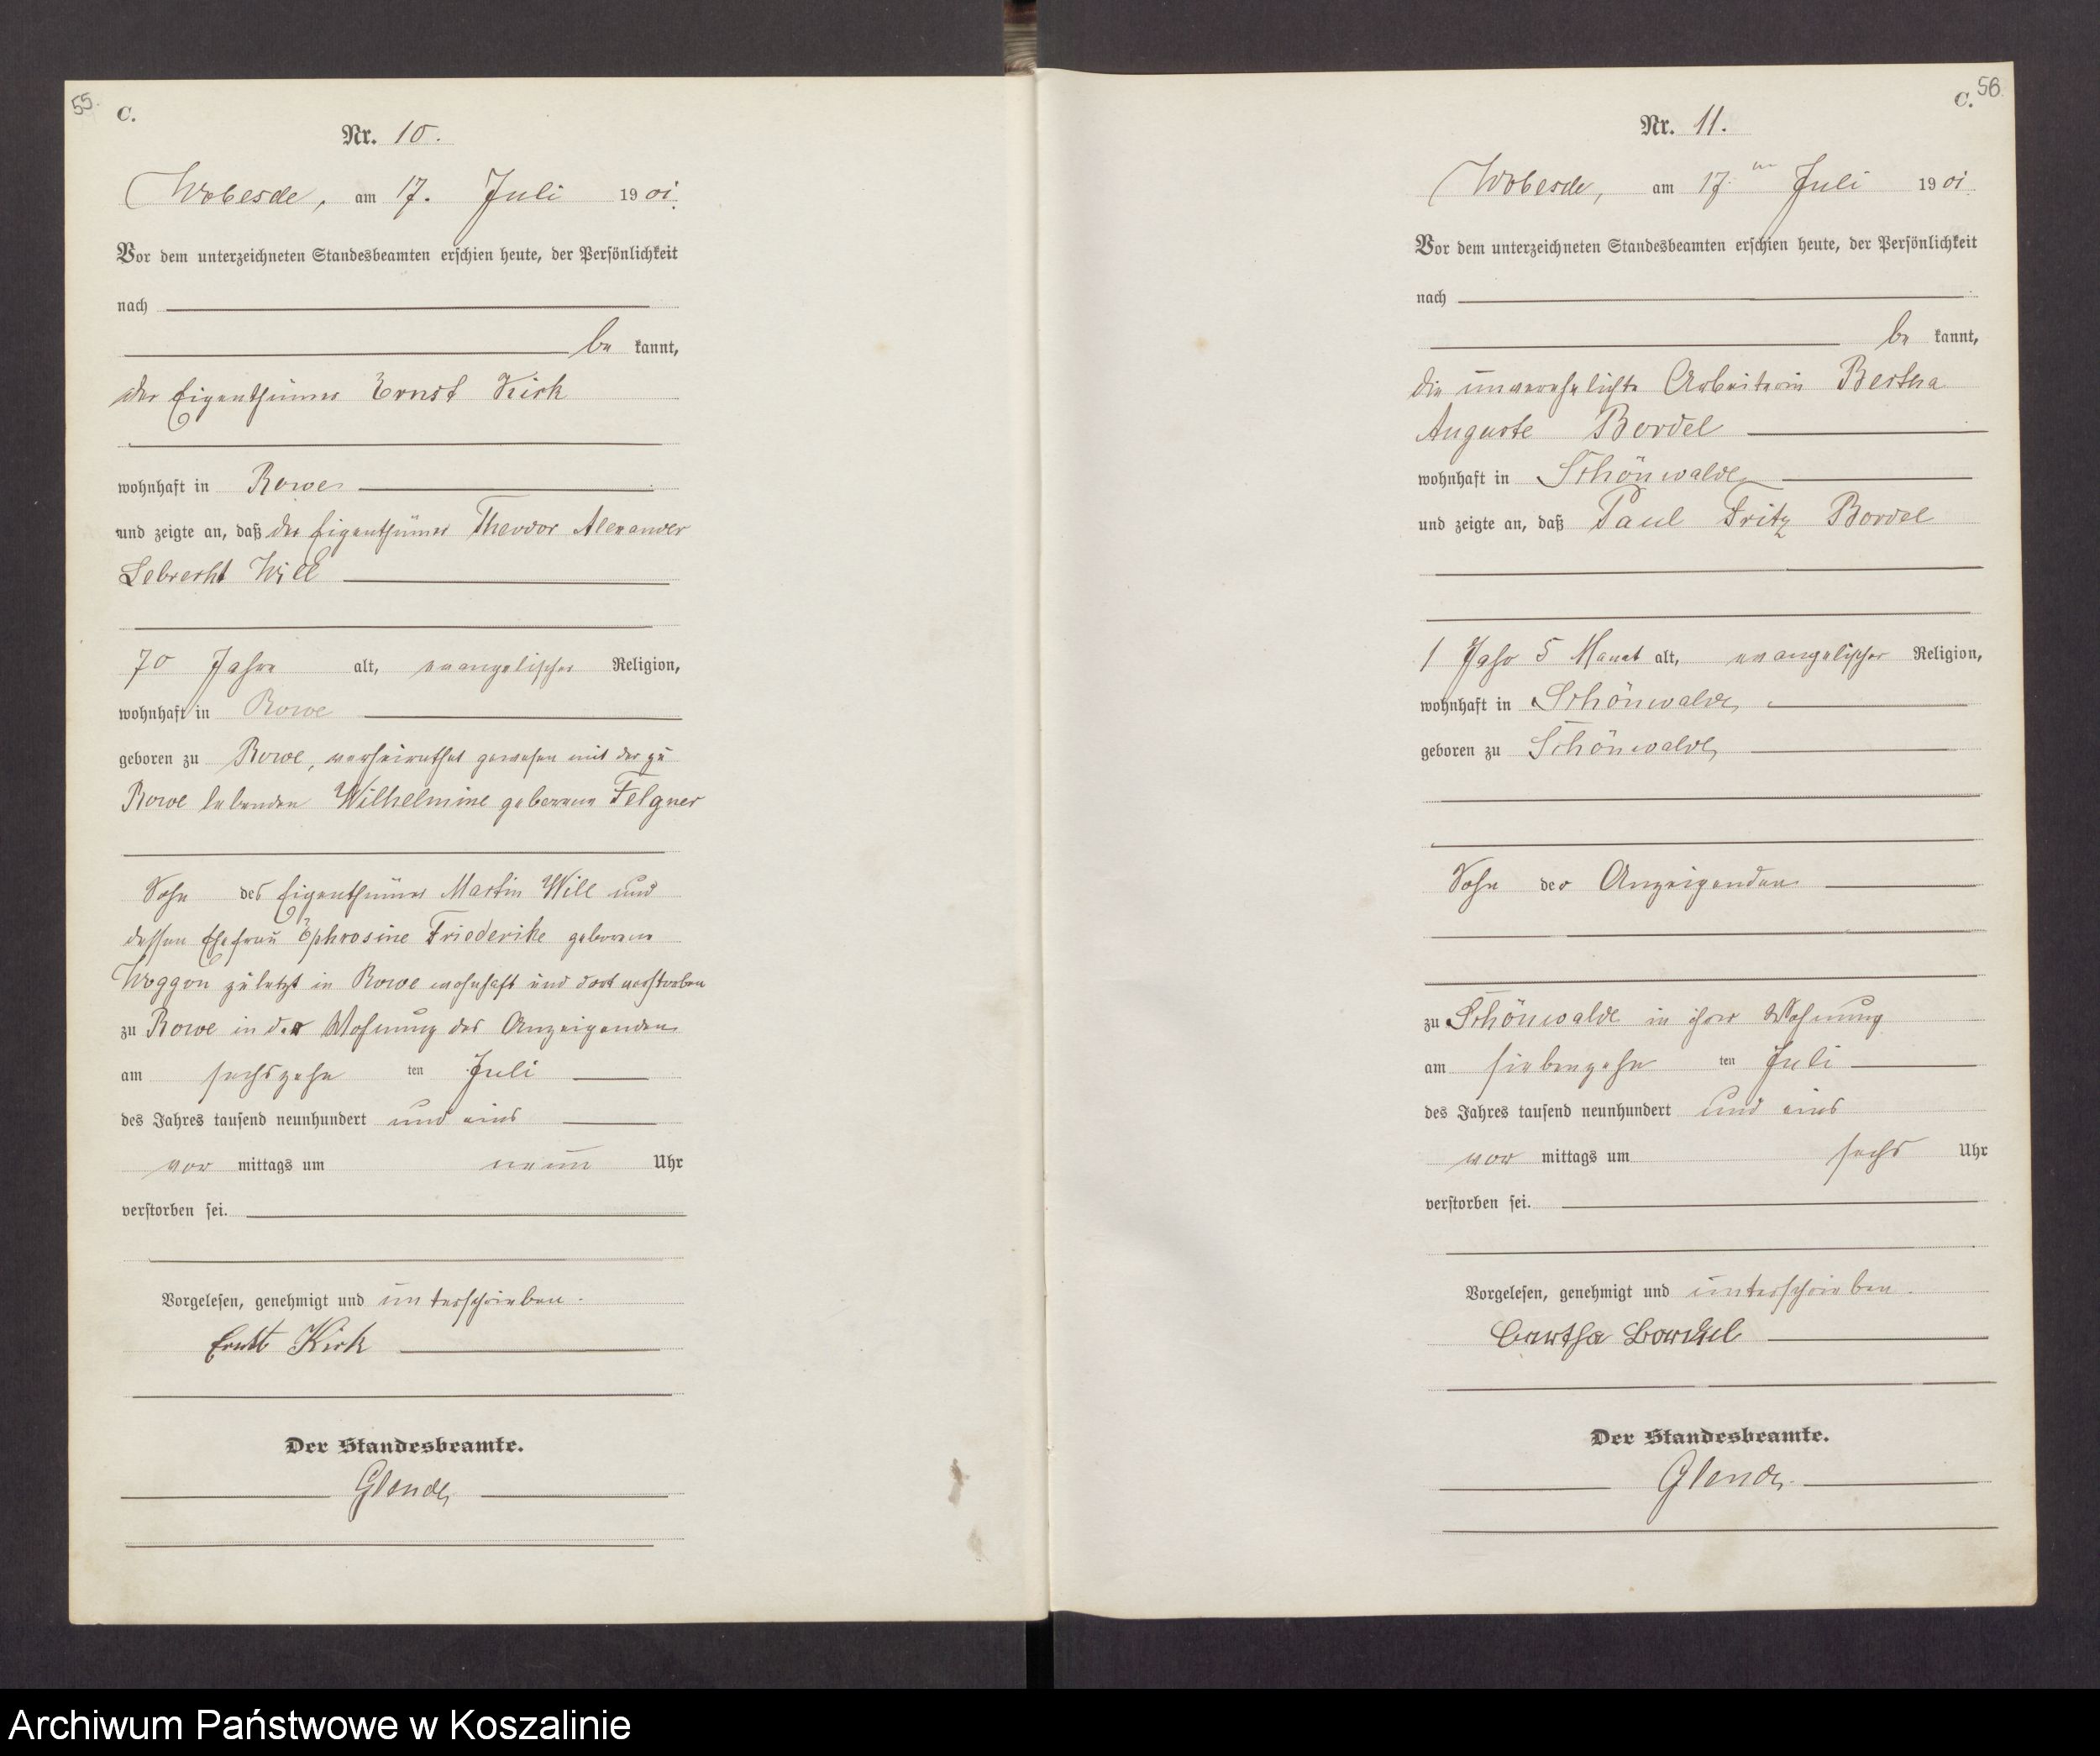 55.
C.
Nr. 10.
Wobesde, am 17. Juli 1901.
Vor dem unterzeichneten Standesbeamten erschien heute, der Persönlichkeit
nach
be kannt,
der Eigenthümer Ernst Kirk
wohnhaft in Rowe
und zeigte an, daß der Eigenthümer Theodor Alexander
Lebrecht Will
70 Jahre alt, evangelischer Religion,
wohnhaft in Rowe
geboren zu Rowe, verheirathet gewesen mit der zu
Rowe lebenden Wilhelmine geborene Felgner
Sohn des Eigenthümer Martin Will und
dessen Ehefrau Ephrosine Friederike geborene
Woggon zuletzt in Rowe wohnhaft und dort verstorben
zu Rowe in der Wohnung des Anzeigenden
am sechszehn ten Juli
des Jahres tausend neunhundert und eins
vor mittags um neun Uhr
verstorben sei.
Vorgelesen, genehmigt und unterschrieben.
Ernst Kirk
Der Standesbeamte.
Glende
56.
C.
Nr. 11.
Wobesde, am 17. ten Juli 1901.
Vor dem unterzeichneten Standesbeamten erschien heute, der Persönlichkeit
nach
be kannt,
die unverehelichte Arbeiterin Bertha
Auguste Bordel
wohnhaft in Schönwalde
und zeigte an, daß Paul Fritz Bordel
1 Jahr 5 Monat alt, evangelischer Religion,
wohnhaft in Schönwalde
geboren zu Schönwalde
Sohn der Anzeigenden
zu Schönwalde in ihrer Wohnung
am siebenzehn ten Juli
des Jahres tausend neunhundert und eins
vor mittags um sechs Uhr
verstorben sei.
Vorgelesen, genehmigt und unterschrieben.
Bertha Bordel
Der Standesbeamte.
Glende
Archiwum Państwowe w Koszalinie